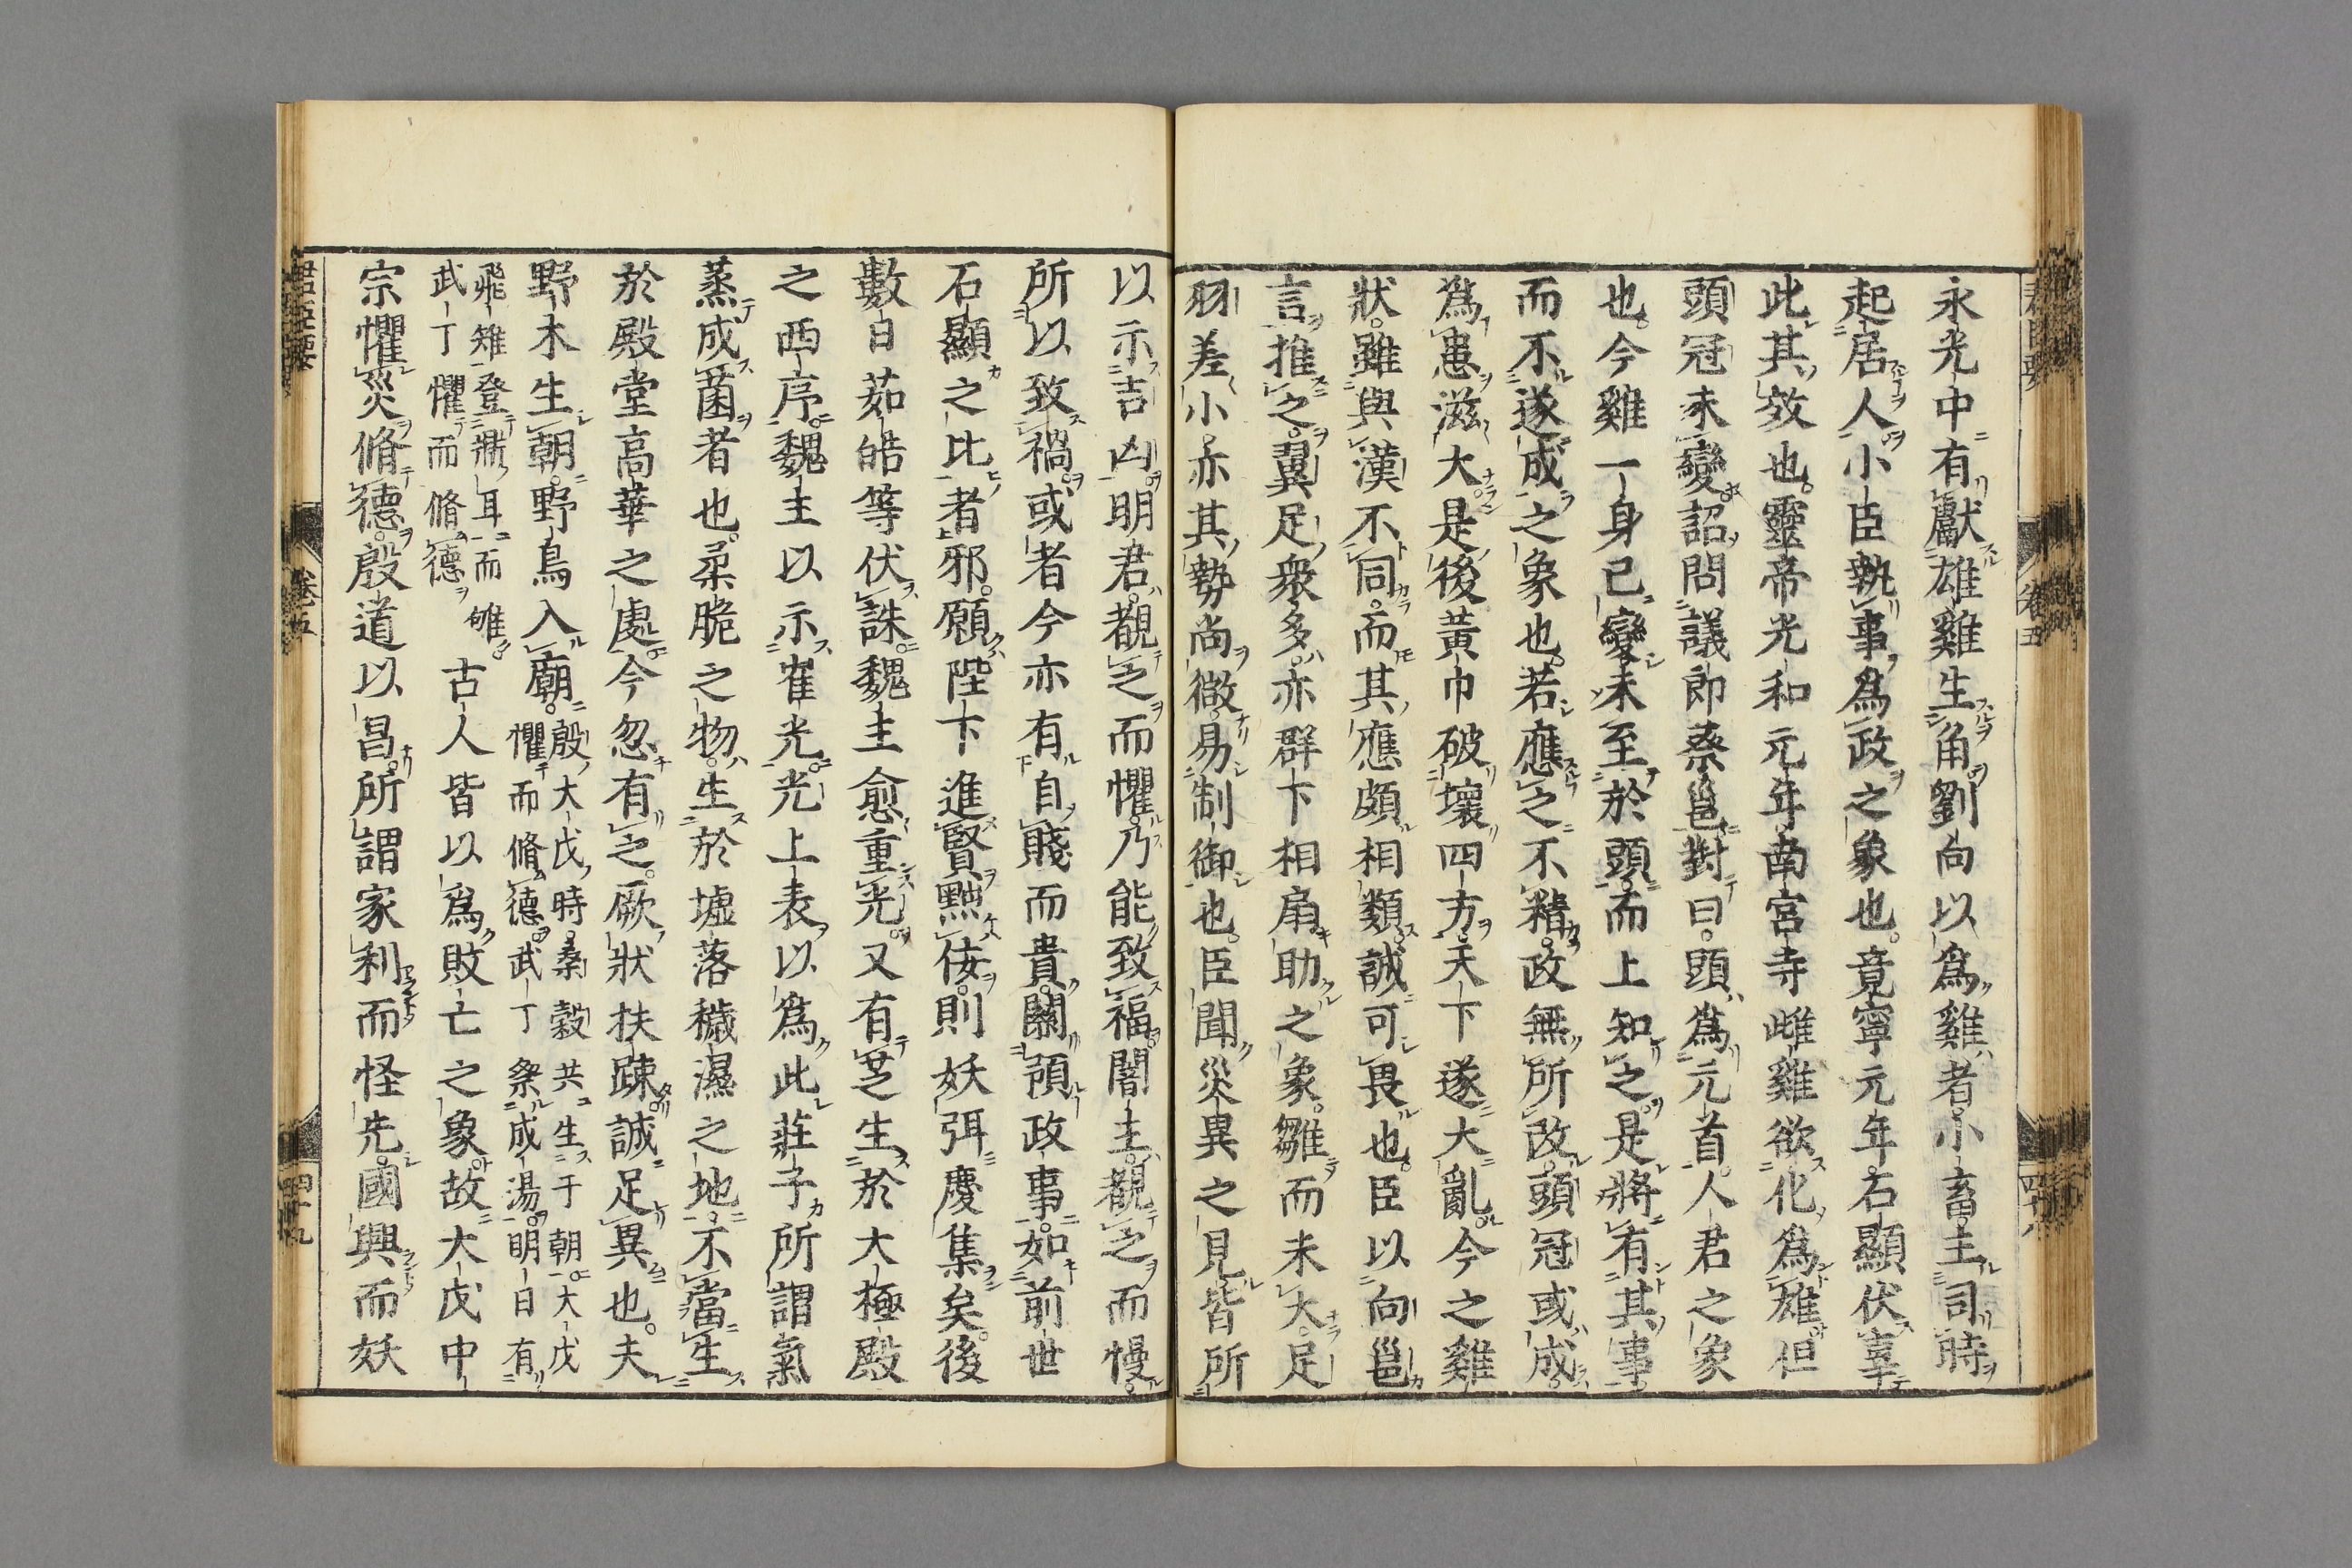 永光中有獻雄雞生角劉向以爲雞者小畜主司時
起居人小臣執事爲政之象也竟寧元年石顯伏辜
此其效也靈帝光和元年南宮寺雌雞欲化爲雄但
頭冠未變詔問議郎蔡邕對曰頭爲元首人君之象
也今雞一身已變未至於頭而上知之是將有其事
而不遂成之象也若應之不精政無所改頭冠或成
爲患滋大是後黃巾破壞四方天下遂大亂今之雞
狀雖與漢不同而其應頗相類誠可畏也臣以向邕
言推之翼足衆多亦群下相扇助之象雛而未大足
羽差小亦其勢尚微易制御也臣聞災異之見皆所
以示吉凶明君覩之而懼乃能致福闇主覩之而慢
所以致禍或者今亦有自賤而貴關預政事如前世
石顯之比者邪願陛下進賢黜佞則妖弭慶集矣後
數日茹皓等伏誅魏主愈重光又有芝生於大極殿
之西序魏主以示崔光光上表以爲此莊子所謂氣
蒸成菌者也柔脆之物生於墟落穢濕之地不當生
於殿堂高華之處今忽有之厥狀扶疎誠足異也夫
野木生朝野鳥入廟殷大戊時桑榖共生于朝大戊
懼而脩德武丁祭成湯明日有
飛雉登鼎耳而雊
武丁懼而脩德古人皆以爲敗亡之象故大戊中
宗懼災脩德殷道以昌所謂家利而怪先國興而妖
卷五
君臣要
卷五